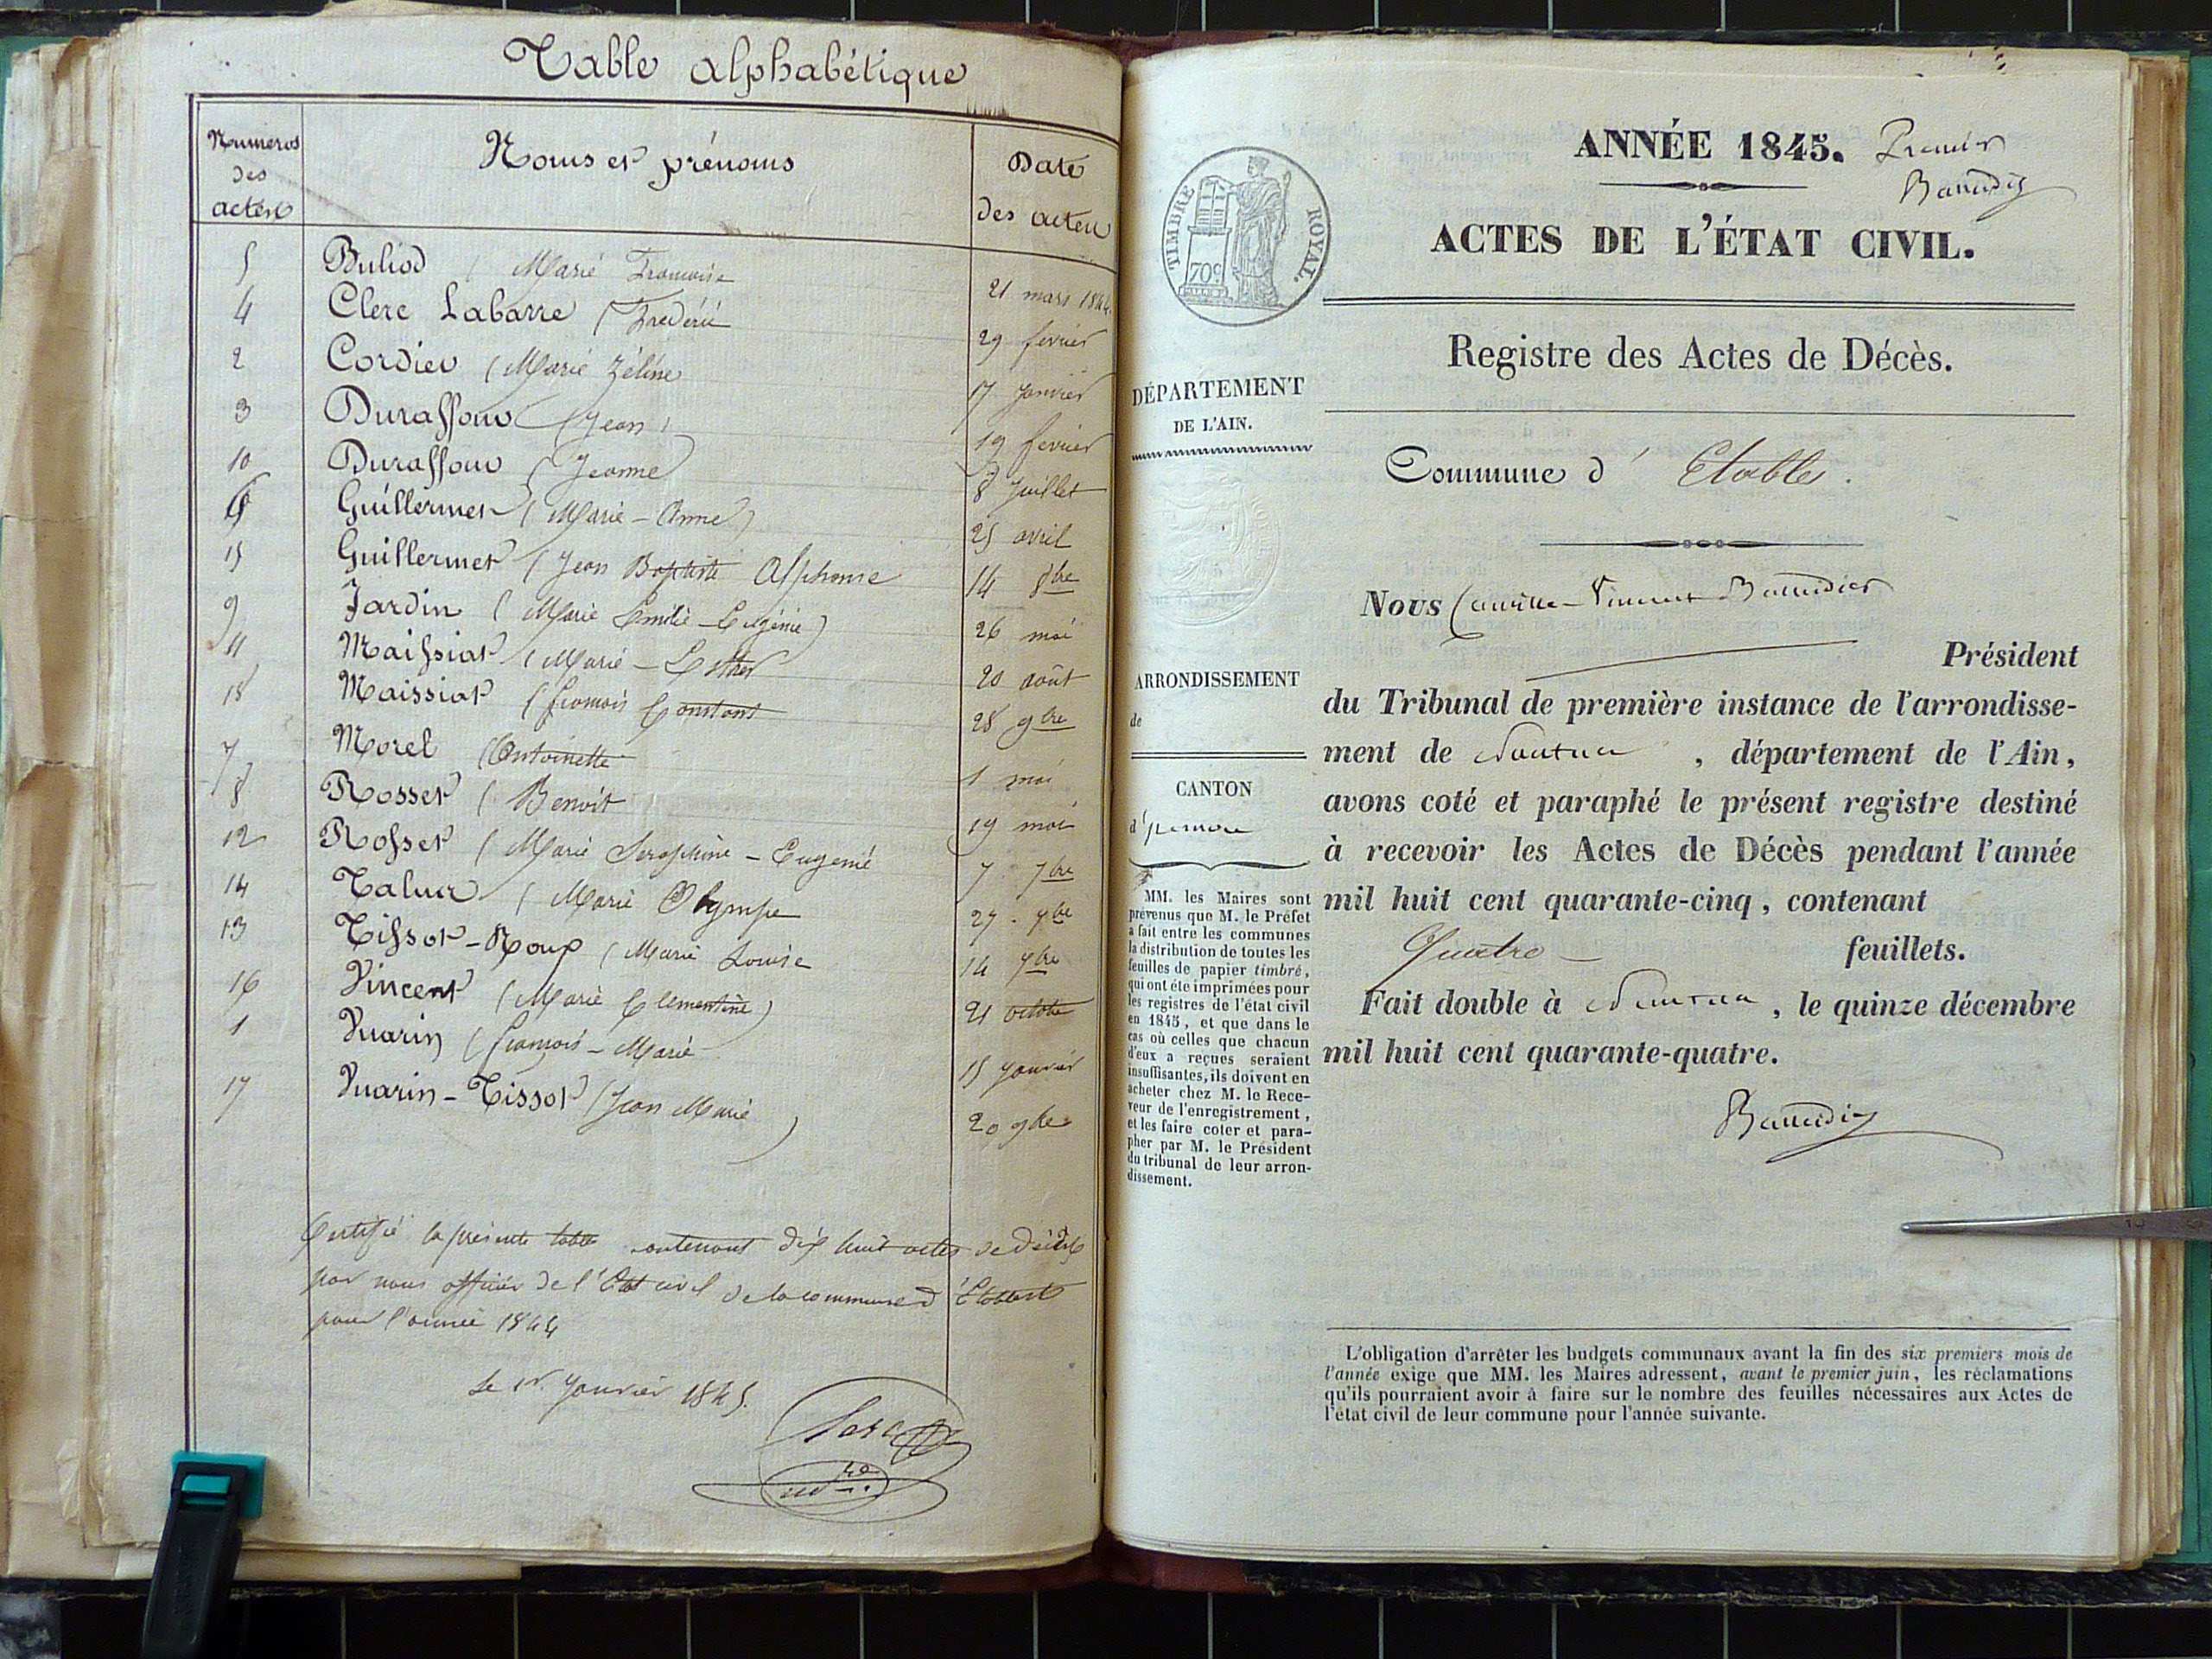 Table alphabétique
Numeros des actes
Noms et prénoms
Date des actes
5 Buliod ( Marie Francoise 21 mars 1844
4 Clerc Labarre ( Frédéric 29 fevrier
2 Cordier ( Marie Zéline 17 Janvier
3 Duraffour ( Jean ) 19 fevrier
10 Duraffour ( Jeanne ) 8 Juillet
6 Guillermet ( Marie - Anne ) 25 avril
15 Guillermet ( Jean Baptiste Alphonse 14 8bre
9 Jardin ( Marie Emilie - Eugénie ) 26 mai
11 Maissiat ( Marie - Esther 20 août
18 Maissiat ( francois Constant 28 9bre
7 Morel ( Antoinette 1 mai
8 Rosset ( Benoit 19 mai
12 Rosset ( Marie Seraphine - Eugenie 7 7bre
14 Talma ( Marie Olympe 27 7bre
13 Tissot - Roup ( Marie Louise 14 7bre
16 Vincent ( Marie Clementine ) 21 octobre
1 Vuarin ( francois - Marie 15 Janvier
17 Vuarin - Tissot ( Jean Marie ) 20 9bre
Certifié la présente table contenant dix huit actes de décès
par nous officier de l'Etat civil de la commune d'Etables
pour l'année 1844
Le 1er Janvier 1845.
ANNÉE 1845. Premier
ACTES DE L'ÉTAT CIVIL.
TIMBRE ROYAL.
70c
Registre des Actes de Décès.
DÉPARTEMENT
DE L'AIN.
Commune d' Etables.
ARRONDISSEMENT
de
CANTON
d'
MM. les Maires sont
prévenus que M. le Préfet
a fait entre les communes
la distribution de toutes les
feuilles de papier timbré,
qui ont été imprimées pour
les registres de l'état civil
en 1845, et que dans le
cas où celles que chacun
d'eux a reçues seraient
insuffisantes, ils doivent en
acheter chez M. le Rece-
veur de l'enregistrement,
et les faire coter et para-
pher par M. le Président
du tribunal de leur arron-
dissement.
Nous Camille - Vincent
Président
du Tribunal de première instance de l'arrondisse-
ment de Nantua, département de l'Ain,
avons coté et paraphé le présent registre destiné
à recevoir les Actes de Décès pendant l'année
mil huit cent quarante-cinq, contenant
Quatre feuillets.
Fait double à Nantua, le quinze décembre
mil huit cent quarante-quatre.
L'obligation d'arrêter les budgets communaux avant la fin des six premiers mois de
l'année exige que MM. les Maires adressent, avant le premier juin, les réclamations
qu'ils pourraient avoir à faire sur le nombre des feuilles nécessaires aux Actes de
l'état civil de leur commune pour l'année suivante.